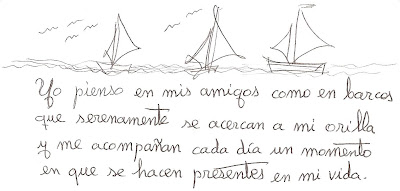 Yo pienso en mis amigos como en barcos
que serenamente se acercan a mi orilla
y me acompañan cada día un momento
en que se hacen presentes en mi vida.